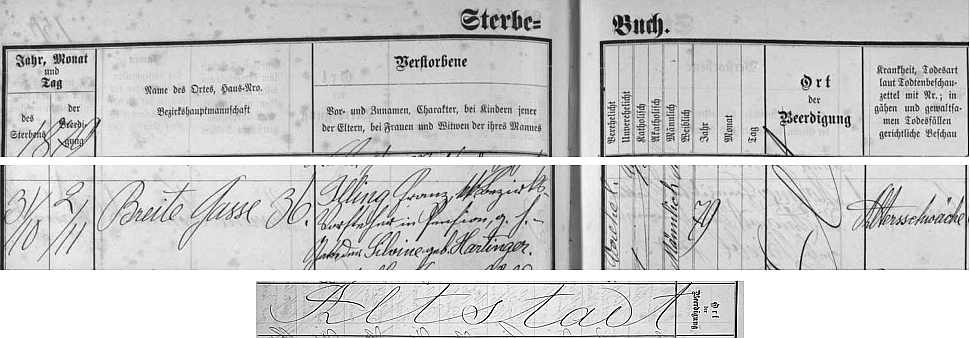 Sterbe= Buch.
Jahr, Monat
und
Tag
des
Sterbens
der
Beerdi-
gung
Name des Ortes, Haus-Nro.
Bezirkshauptmannschaft
Verstorbene
Vor- und Zunamen, Charakter, bei Kindern jener
der Eltern, bei Frauen und Witwen der ihres Mannes
Verehelicht
Unverehelicht
Katholisch
Akatholisch
Männlich
Weiblich
Jahr
Monat
Tag
Ort
der
Beerdigung
Krankheit, Todesart
laut Todtenbeschau-
zettel mit Nr.; in
gähen und gewaltsa-
men Todesfällen
gerichtliche Beschau
31/10
2/11
Breite Gasse 36.
Illing Franz, Bezirks-
vorsteher in Pension, g. h.
Silvine geb. Hartinger.
Männlich
79
Altersschwäche
Altstadt
Ort
der
Beerdigung